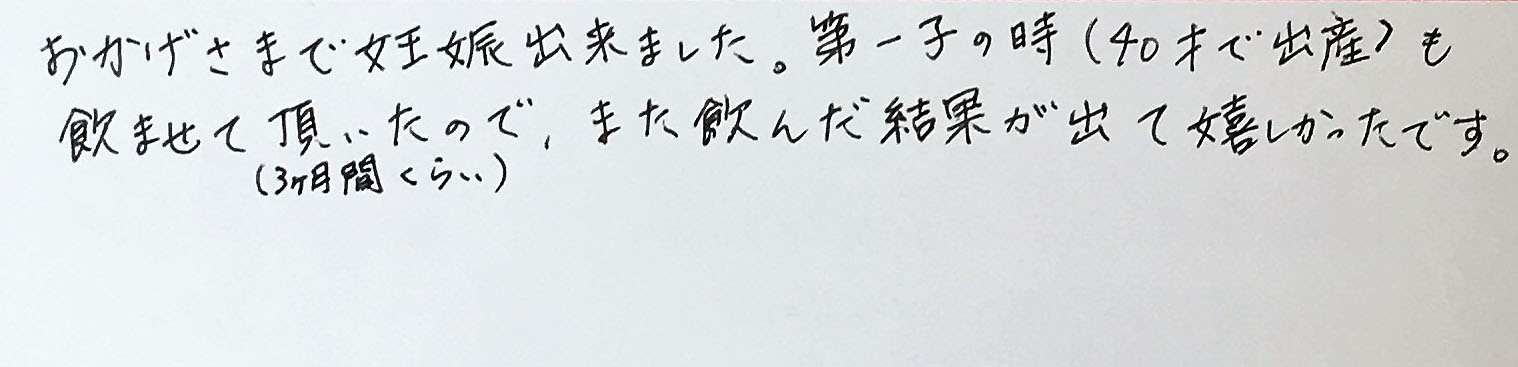 おかげさまで妊娠出来ました。第一子の時(40才で出産)も
飲ませて頂いたので、また飲んだ結果が出て嬉しかったです。
(3ヶ月間くらい)